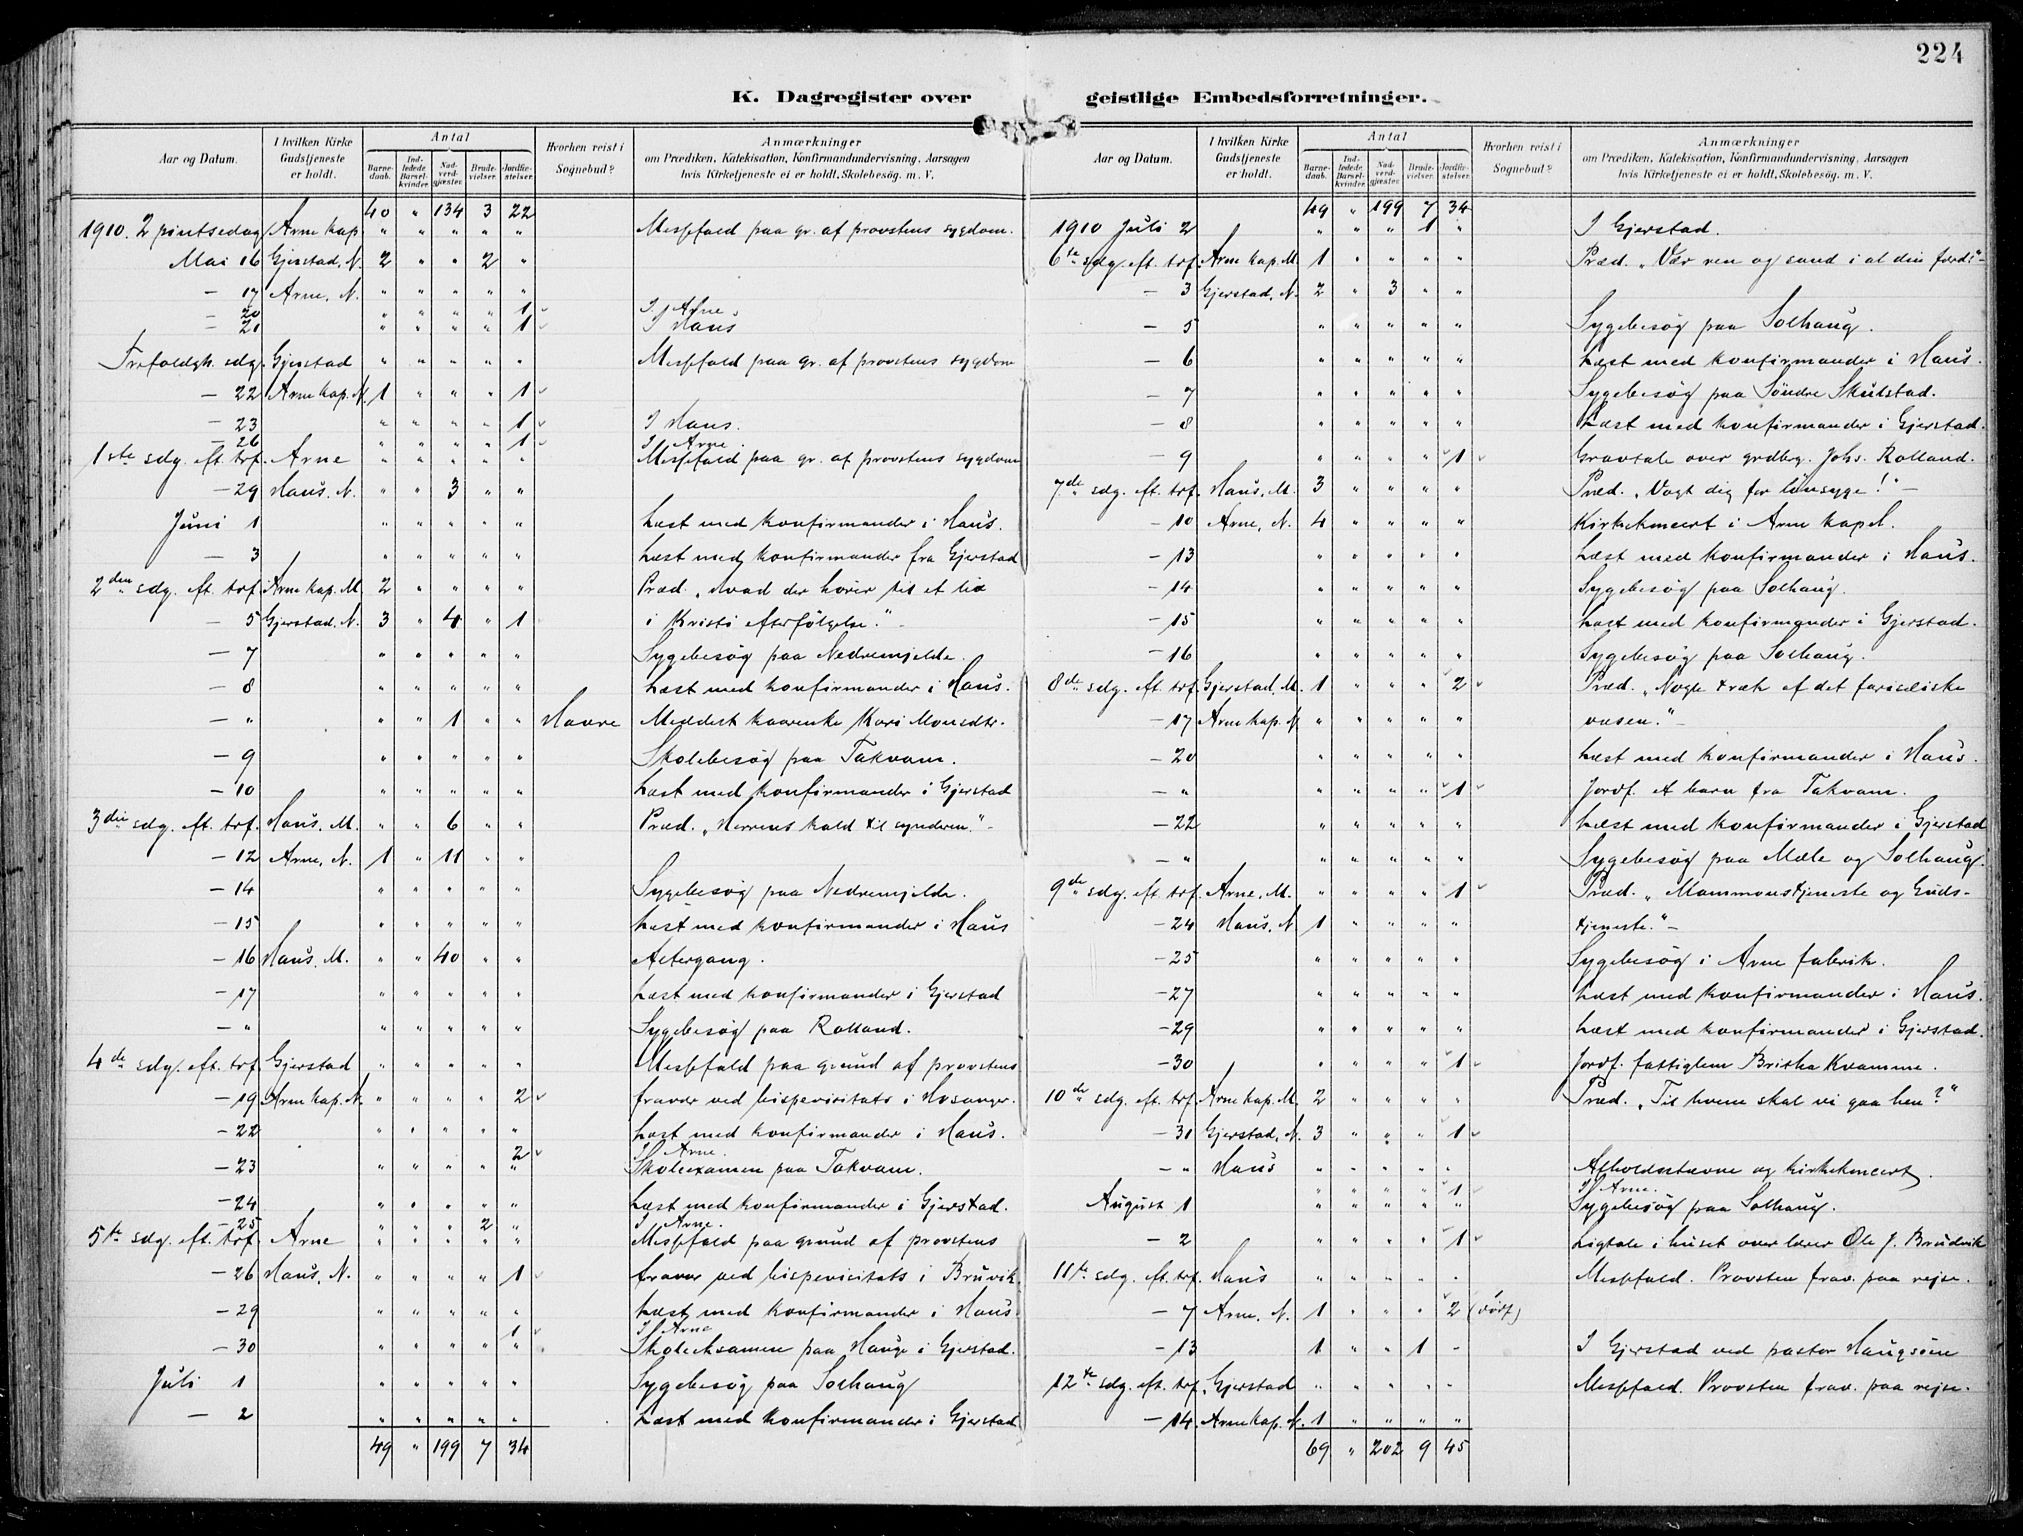 224
K. Dagregister over geistlige Embedsforretninger.
Aar og Datum. I hvilken Kirke Gudstjeneste er holdt. Antal Barnedaab. Indledede Barselkvinder. Nadverdgjæster. Brudevielser. Jordfæstelser. Hvorhen reist i Sognebud? Anmærkninger om Prædiken, Katekisation, Konfirmandundervisning, Aarsagen hvis Kirketjeneste ei er holdt, Skolebesøg. m. V.
40 " 134 3 22
1910. 2 pintsedag Arne kap. " " " " " Messefald paa gr. af provstens sygdom.
Mai 16 Gjerstad, N. 2 " " 2 "
— 17 Arne, N. " " " " "
— 20 " " " " 1 I Arne.
— 21 " " " " 1 I Haus
Trefoldgh. sdg. Gjerstad " " " " " Messefald paa gr. af provstens sygdom
— 22 Arne kap. N. 1 " " " 1
— 23 " " " " 1 I Haus.
— 26 " " " " 1 I Arne.
1ste sdg. eft. trf. Arne " " " " " Messefald paa gr. af provstens sygdom
— 29 Haus. N. " " 3 " "
Juni 1 " " " " " Læst med konfirmander i Haus.
— 3 " " " " " Læst med konfirmander fra Gjerstad
2den sdg. eft. trf. Arne kap. M. 2 " " " " Præd. „Hvad der hører til et liv
— 5 Gjerstad. N. 3 " 4 " 1 i Kristi efterfølgelse." —
— 7 " " " " " Sygebesøg paa Nedremjelde.
— 8 " " " " " Læst med konfirmander i Haus.
— " " " 1 " " Havre Meddelt kaarenke Kari Monsdtr.
— 9 " " " " " Skolebesøg paa Takvam.
— 10 " " " " " Læst med konfirmander i Gjerstad
3die sdg. eft. trf. Haus. M. " " 6 " " Præd. „Herrens kald til synderen." —
— 12 Arne, N. 1 " 11 " "
— 14 " " " " " Sygebesøg paa Nedremjelde.
— 15 " " " " " Læst med konfirmander i Haus
— 16 Haus. M. " " 40 " " Altergang.
— 17 " " " " " Læst med konfirmander i Gjerstad
— " " " " " " Sygebesøg paa Rolland.
4de sdg. eft. trf. Gjerstad " " " " " Messefald paa grund af provstens
— 19 Arne kap. N. " " " " 2 fravær ved bispevisitats i Hosanger.
— 22 " " " " " Læst med konfirmander i Haus.
2 I Arne.
— 23 " " " " " Skoleexamen paa Takvam.
— 24 " " " " " Læst med konfirmander i Gjerstad.
— 25 " " " 2 " I Arne.
5te sdg. eft. trf. Arne " " " " " Messefald paa grund af provstens
— 26 Haus, N. " " " " 1 fravær ved bispevisitats i Bruvik.
— 29 " " " " " Læst med konfirmander i Haus.
1 I Arne
— 30 " " " " " Skoleeksamen paa Hauge i Gjerstad.
Juli 1 " " " " " Sygebesøg paa Solhaug
— 2 " " " " " Læst med konfirmander i Gjerstad
49 " 199 7 34
Aar og Datum. I hvilken Kirke Gudstjeneste er holdt. Antal Barnedaab. Indledede Barselkvinder. Nadverdgjæster. Brudevielser. Jordfæstelser. Hvorhen reist i Sognebud? Anmærkninger om Prædiken, Katekisation, Konfirmandundervisning, Aarsagen hvis Kirketjeneste ei er holdt, Skolebesøg. m. V.
49 " 199 7 34
1910 Juli 2 " " " 1 " I Gjerstad.
6te sdg. eft. trf. Arne kap. M. 1 " " " " Præd. „Vær ren og sand i al din færd!" —
— 3 Gjerstad, N. 2 " 3 " "
— 5 " " " " " Sygebesøg paa Solhaug.
— 6 " " " " " Læst med konfirmander i Haus.
— 7 " " " " " Sygebesøg paa Søndre Skulstad.
— 8 " " " " " Læst med konfirmander i Gjerstad.
— 9 " " " " 1 Gravtale over grdbrg. Johs. Rolland.
7de sdg. eft. trf. Haus, M. 3 " " " " Præd. „Vogt dig for lønsyge!" —
— 10 Arne, N. 4 " " " " Kirkekoncert i Arne kapel.
— 13 " " " " " Læst med konfirmander i Haus.
— 14 " " " " " Sygebesøg paa Solhaug.
— 15 " " " " " Læst med konfirmander i Gjerstad.
— 16 " " " " " Sygebesøg paa Solhaug.
8de sdg. eft. trf. Gjerstad, M. 1 " " " 2 Præd. „Nogle træk af det fariseiske
— 17 Arne kap. N. " " " " " væsen." —
— 20 " " " " " Læst med konfirmander i Haus.
— " " " " " 1 Jordf. et barn fra Takvam.
— 22 " " " " " Læst med konfirmander i Gjerstad
— " " " " " " Sygebesøg paa Mæle og Solhaug.
9de sdg. eft. trf. Arne, M. " " " " 1 Præd. „Mammonstjeneste og Guds-
— 24 Haus, N. 1 " " " " tjeneste." —
— 25 " " " " " Sygebesøg i Arne fabrik.
— 27 " " " " " Læst med konfirmander i Haus.
— 29 " " " " " Læst med konfirmander i Gjerstad.
— 30 " " " " 1 Jordf. fattiglem Britha Kvamme.
10de sdg. eft. trf. Arne kap. M. 2 " " " " Præd. „Til hvem skal vi gaa hen?"
— 31 Gjerstad, N. 3 " " " 1
— " Haus " " " " " Afholdsstævne og kirkekoncert.
" " " " 1 I Arne.
August 1 " " " " " Sygebesøg paa Solhaug.
— 2 " " " " 1 Ligtale i huset over lærer Ole J. Brudvik
11te sdg. eft. trf. Haus " " " " " Messefald. Provsten frav. paa rejse.
— 7 Arne, N. 1 " " " 2
— 13 1 " " 1 " I Gjerstad ved pastor Haugsøen
12te sdg. eft. trf. Gjerstad " " " " " Messefald. Provsten frav. paa rejse.
— 14 Arne kap. N. 1 " " " "
69 " 202 9 45